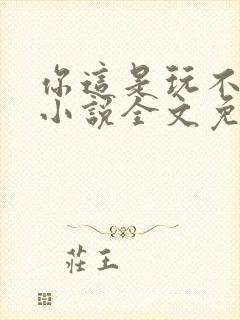 你這是玩不
小說全文免
莊王